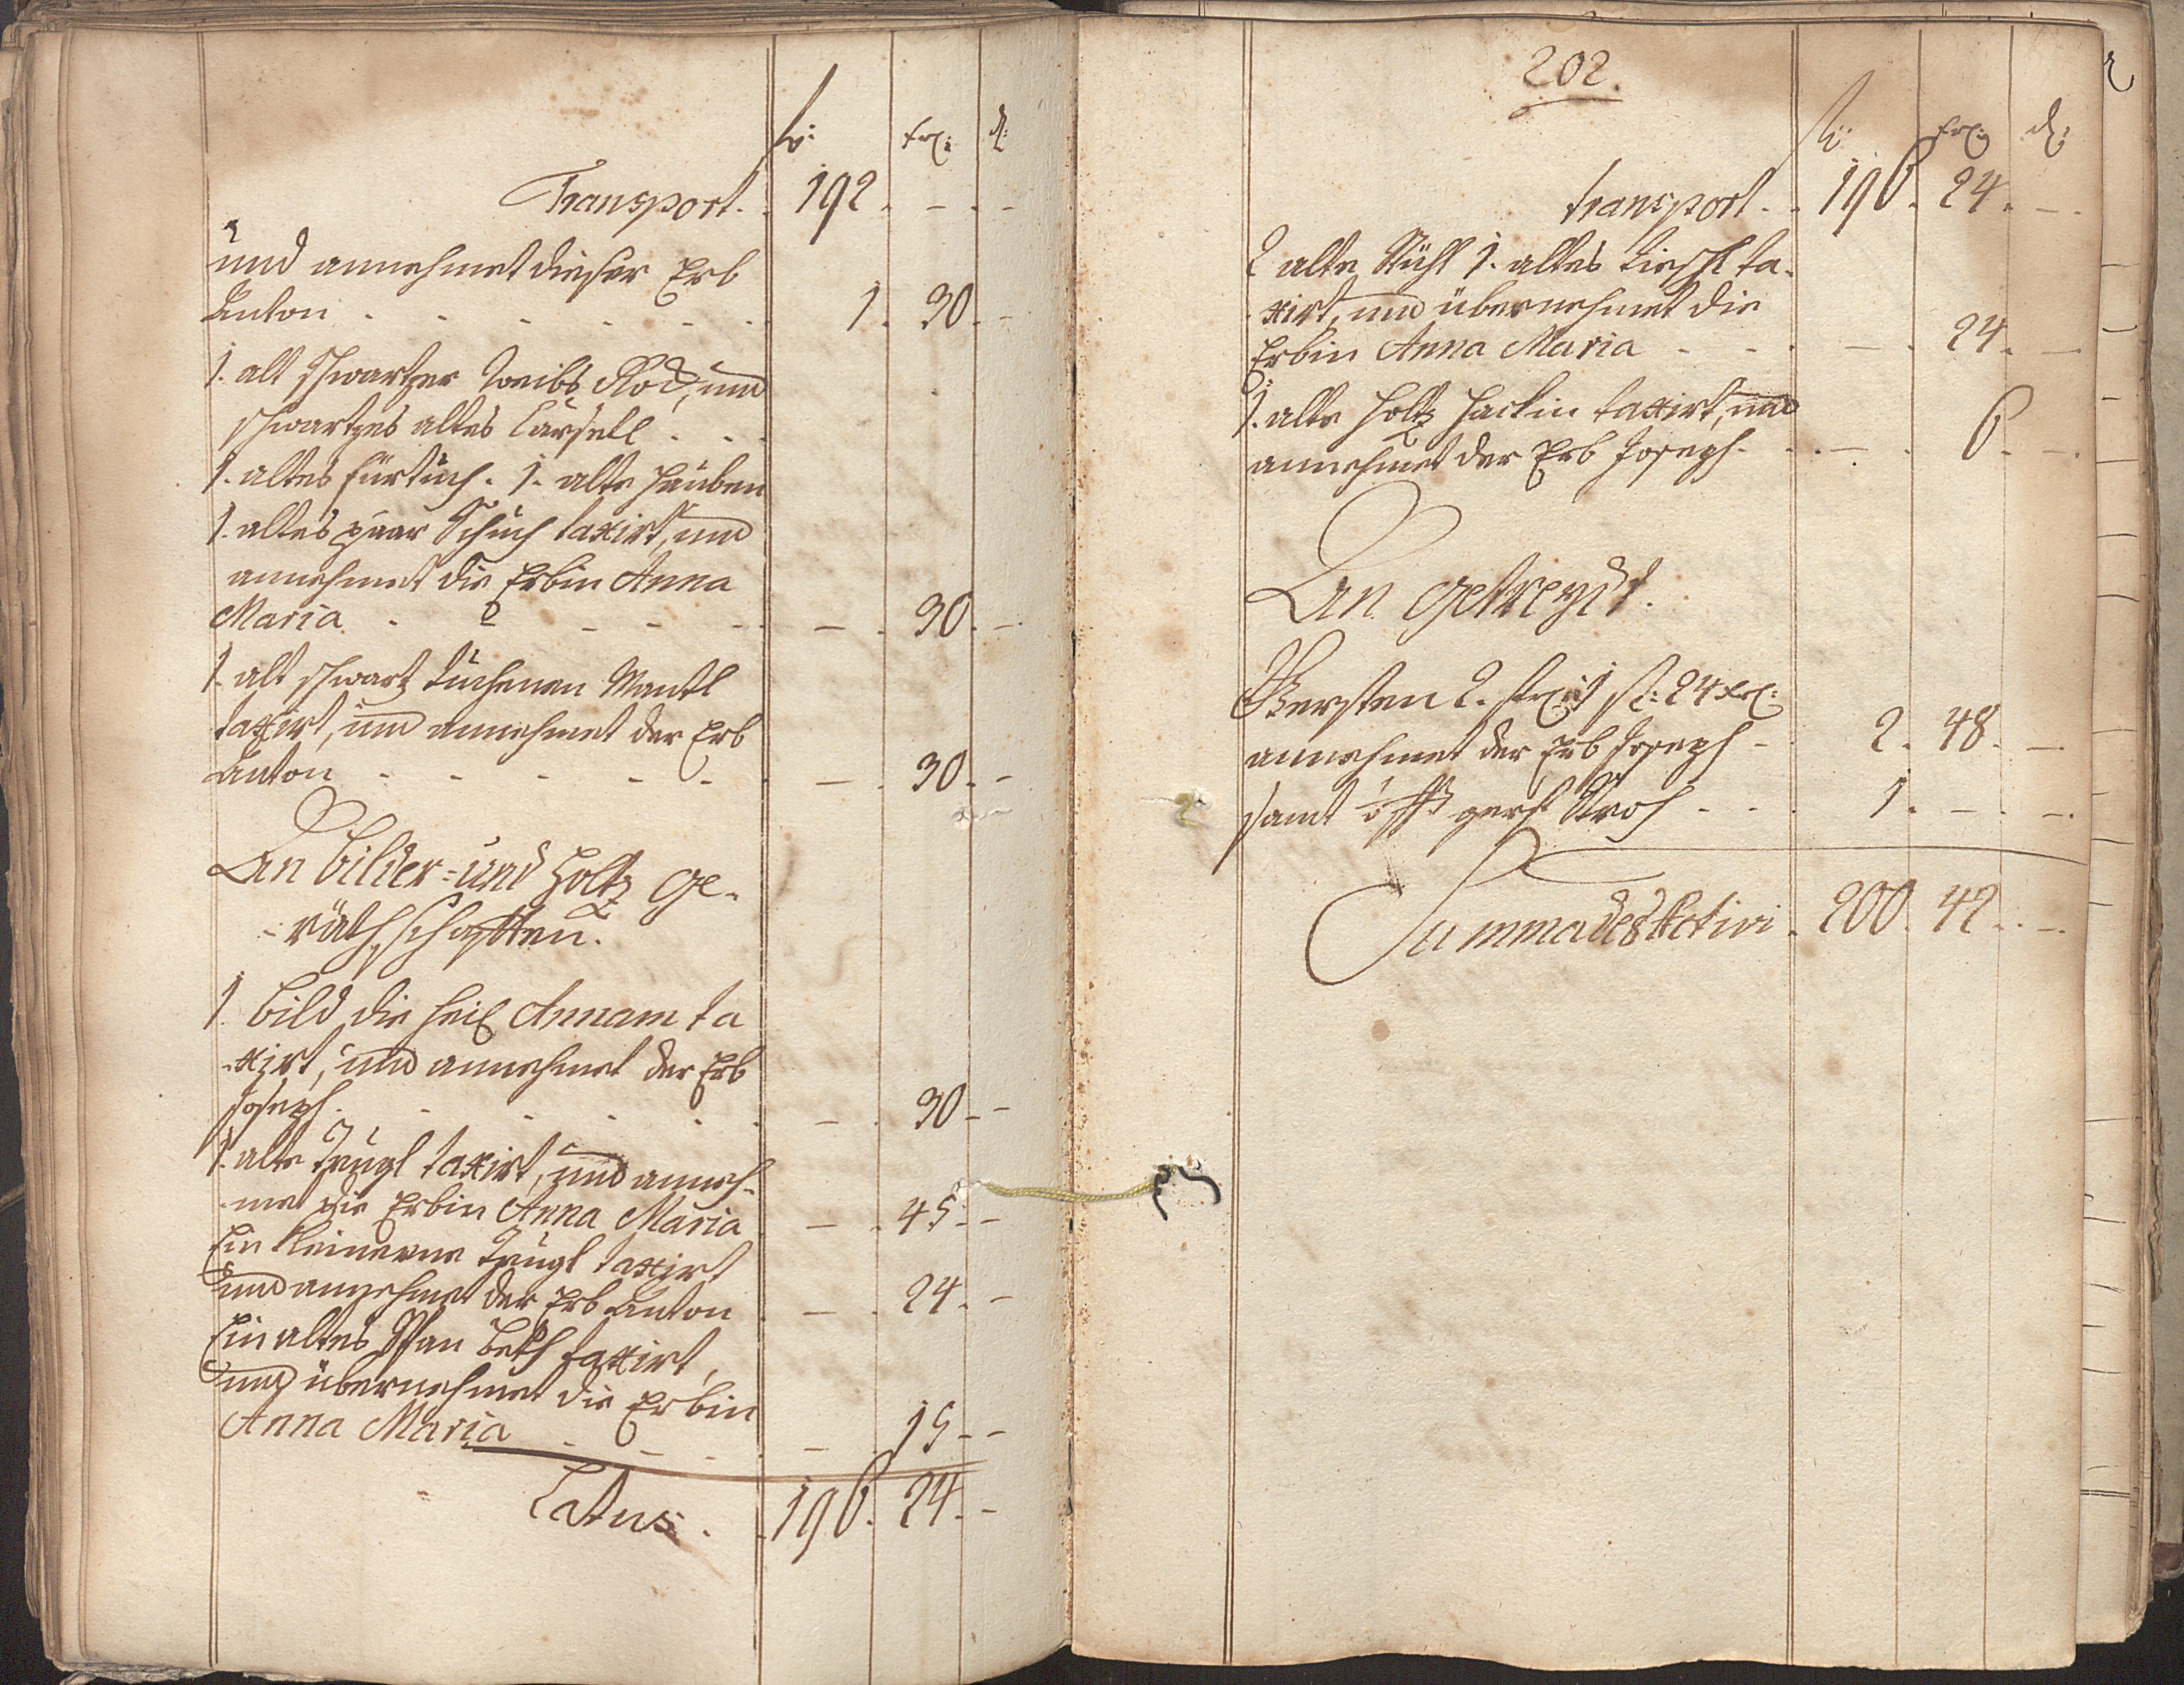 fl: kr: d:
Transport. 192. - . -
und annehmet dieser Erb
Anton . - - - - - 1. 30. -
1. alt schwartzer Weibs Rock, und
schwartzes altes Carsell . . .
1. altes fürtuch. 1. alte hauben
1. altes paar Schuch taxirt, und
annehmet die Erbin Anna
Maria . - - - - - . 30. -
1. alt schwartz tuchenen Mantl
taxirt, und annehmet der Erb
Anton - - - - - - . 30. -
An bilder= und holtz ge-
-räthschafften.
1 bild die heil Annam ta
-xirt, und annehmet der Erb
Joseph. - - - - - . 30 - -
1. alte truhl taxirt, und anneh-
-met die Erbin Anna Maria - . 45 - -
Ein kleinerne truhl taxirt
und annehmet der Erb Anton - . 24. -
Ein altes Span beth taxirt,
und übernehmet die Erbin
Anna Maria - - - - . 15 - -
Latus . . 196. 24. -
202.
fl: kr: d:
transport. . 196. 24. -
2 alte Stühl 1. altes tischl ta-
-xirt, und übernehmet die
Erbin Anna Maria - - . - . 24. -
1. alte holtz hackin taxirt, und
annehmet der Erb Joseph. - . - . 6. -
An getreydt.
Gersten 2. 1 fl: 24 kr:
annehmet der Erb Joseph - 2. 48. -
samt gerst Stroh - - . 1. - . -
Summa des Activi . 200. 42. . -